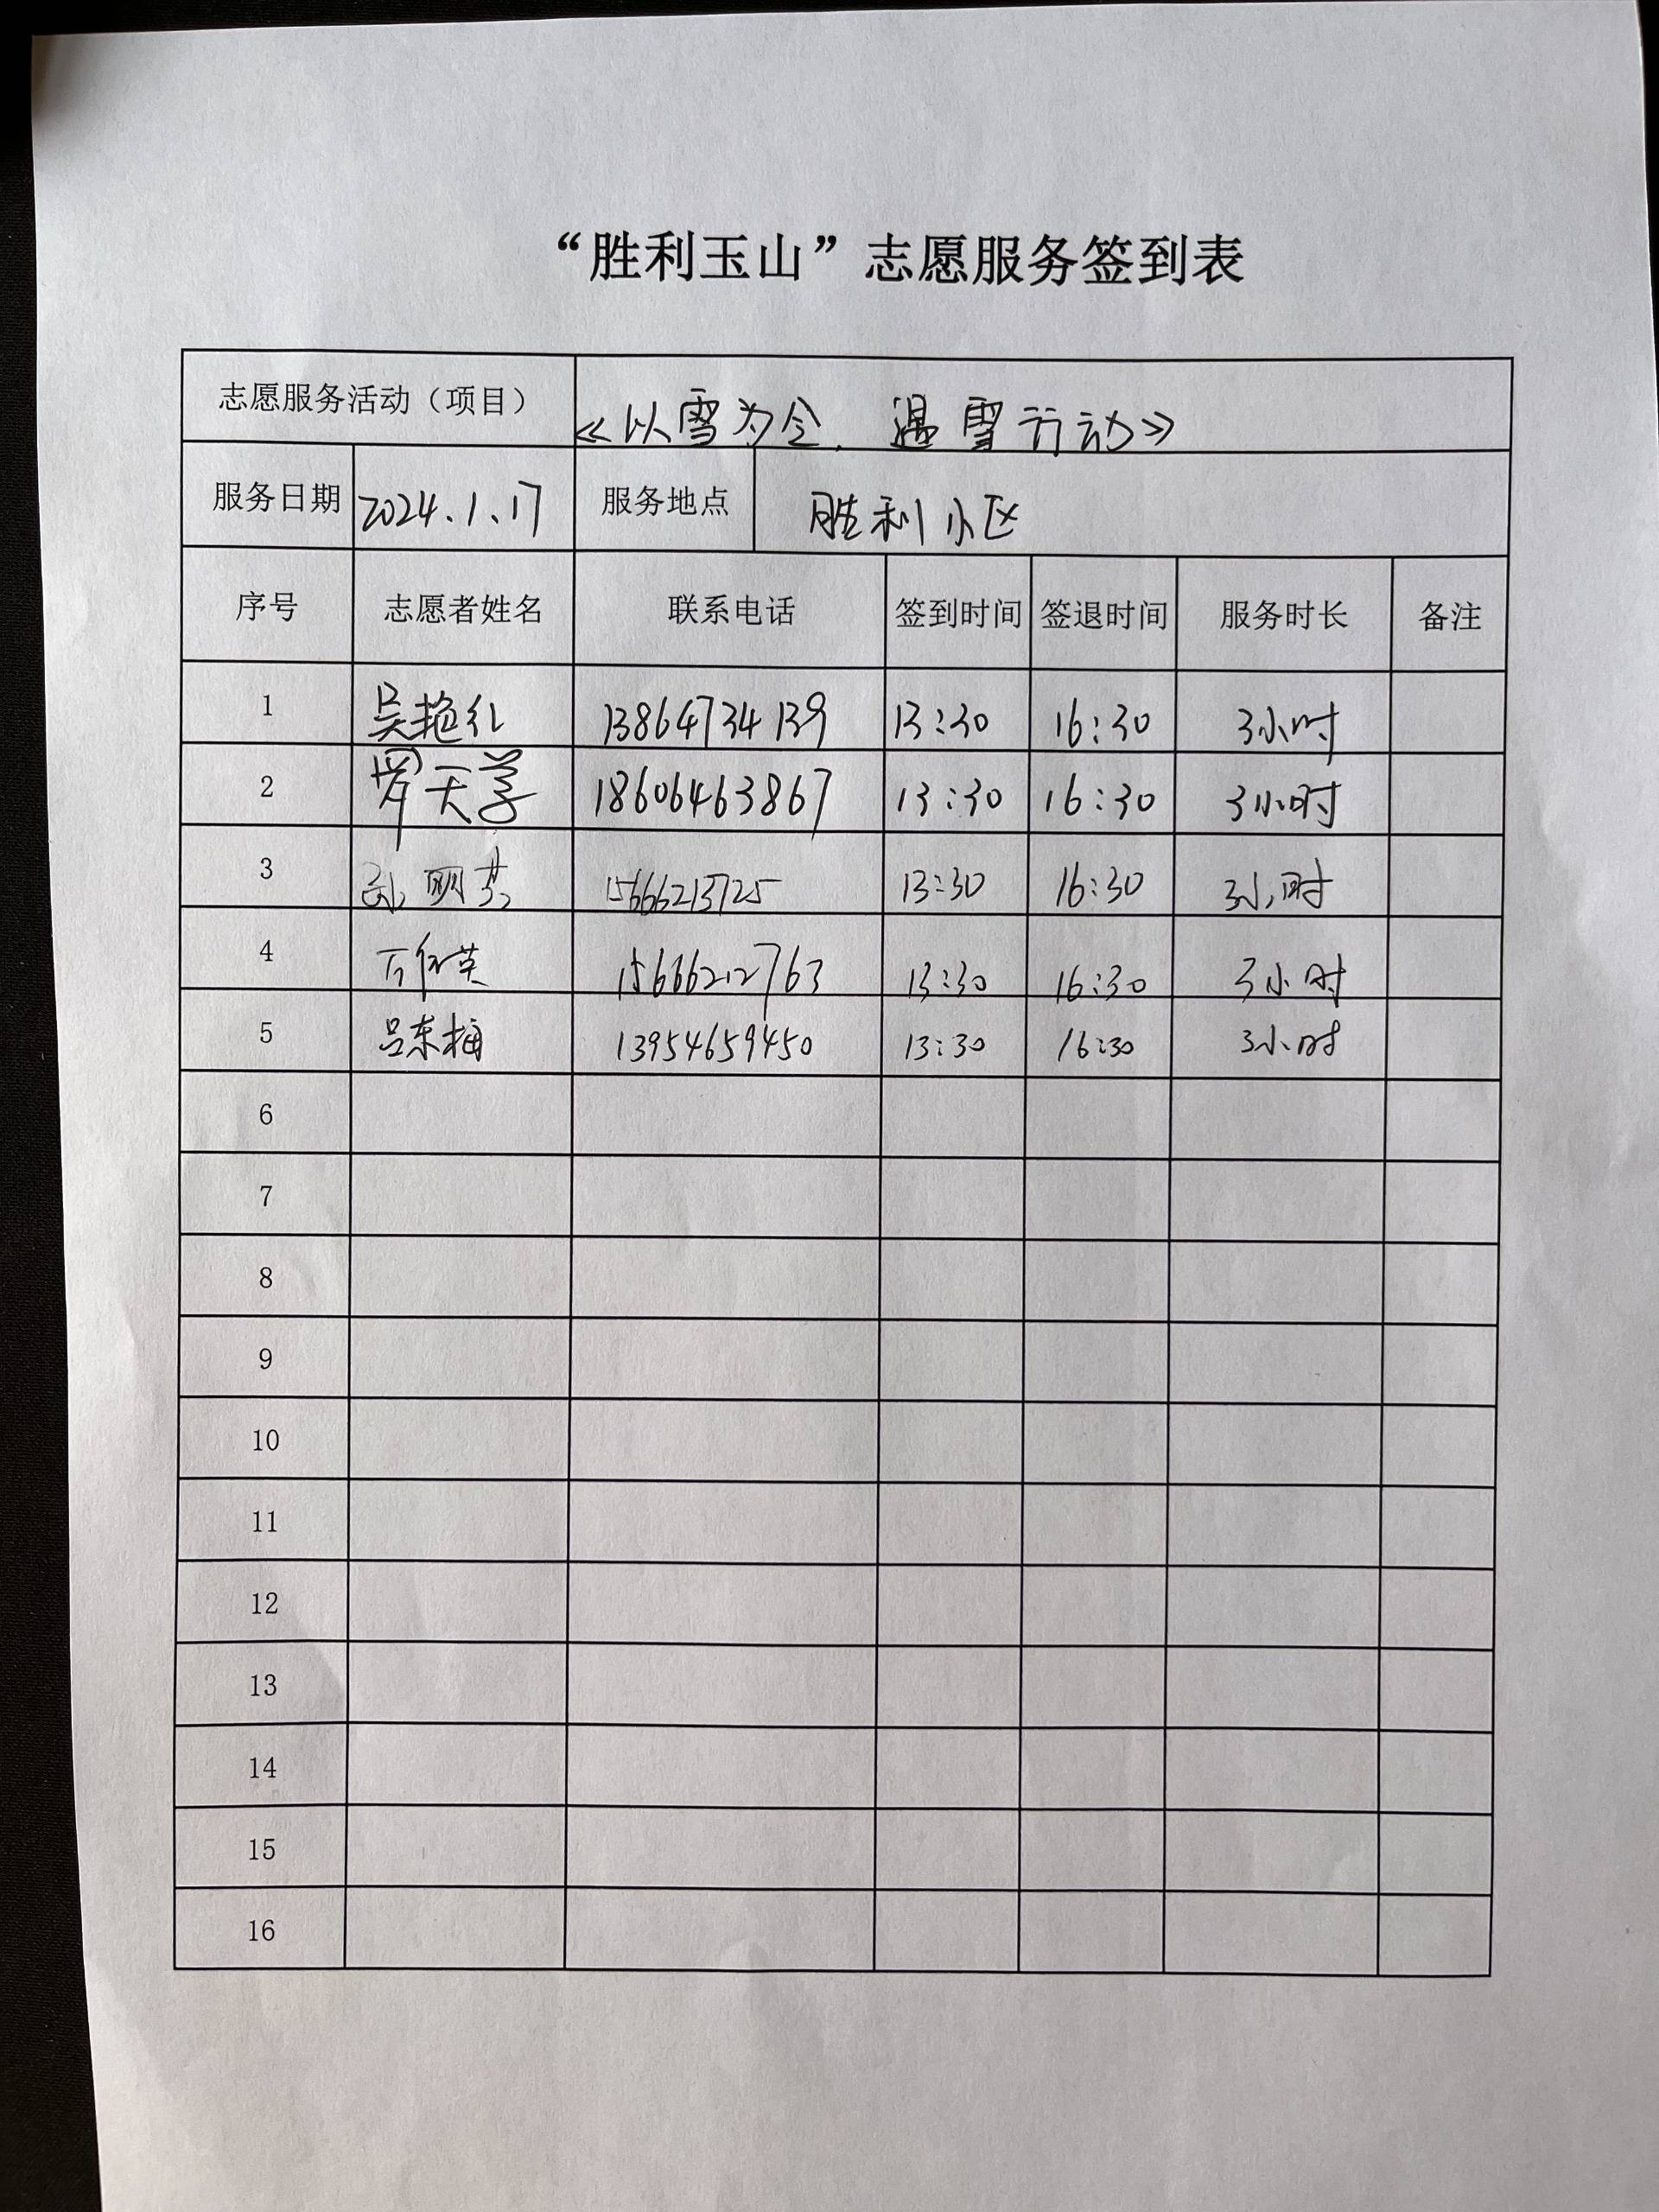 “胜利玉山”志愿服务签到表
志愿服务活动（项目） 《以雪为令，遇雪行动》
服务日期 2024.1.17 服务地点 胜利小区
序号 志愿者姓名 联系电话 签到时间 签退时间 服务时长 备注
1 吴艳红 13864734139 13:30 16:30 3小时
2 罗天学 18606463867 13:30 16:30 3小时
3 孙丽芳 15666213725 13:30 16:30 3小时
4 英 15666212763 13:30 16:30 3小时
5 吕东梅 13954659450 13:30 16:30 3小时
6
7
8
9
10
11
12
13
14
15
16